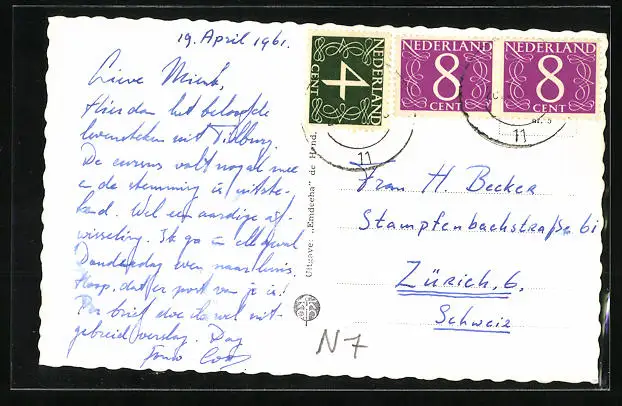 19. April 1961.
Lieve Mienk,
Hier dan het beloofde
levensteken uit Tilburg.
De cursus valt nogal mee
en de stemming is uitste-
kend. Wel een aardige af-
wisseling. Ik ga in elk geval
Donderdag weer naar huis.
Hoop, dat er post van je is!
Per brief doe ik wel uit-
gebreid verslag. Dag
Uitgave: „Emdeeha" de Hand,
NEDERLAND
4
CENT
NEDERLAND
8
CENT
NEDERLAND
8
CENT
11
11
Frau H. Becker
Stampfenbachstraße 61
Zürich, 6.
Schweiz
N7